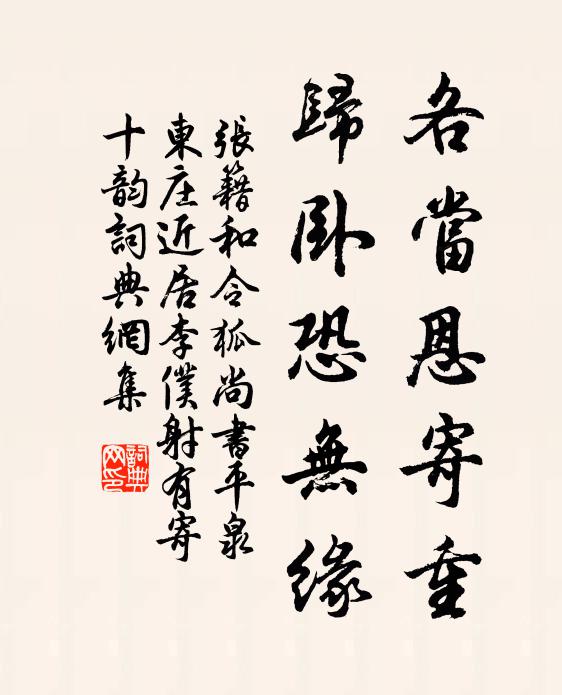 各當恩寄重
歸臥恐無緣
張籍和令狐尚書平泉
東庄近居李僕射有寄
十韵詞典網集
詞典
网印